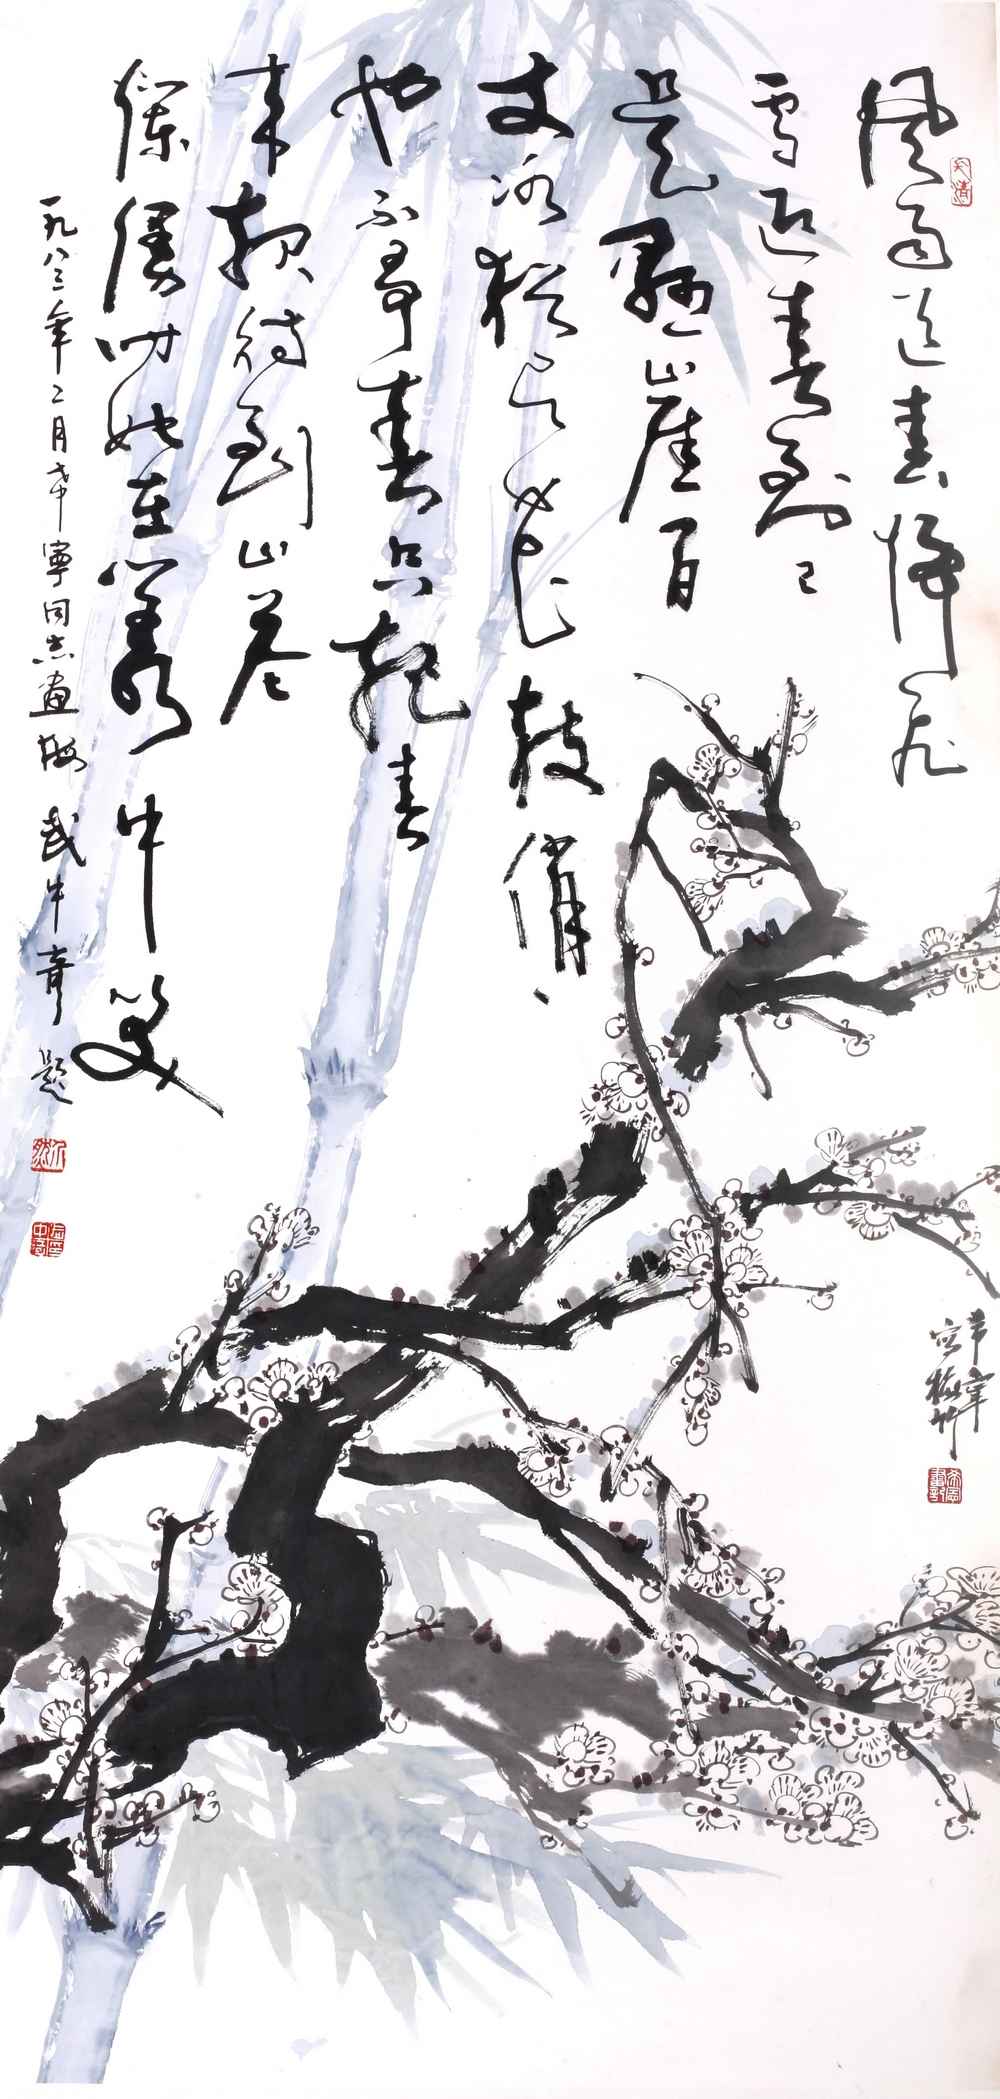 風雨送春歸飛
雪迎春到已
是懸崖百
丈冰猶有花枝俏、
也不争春只把春
来報待到山花
爛漫时她在叢中笑
一九八三年二月 寧同志畫梅 武中奇題
寧
寫梅竹